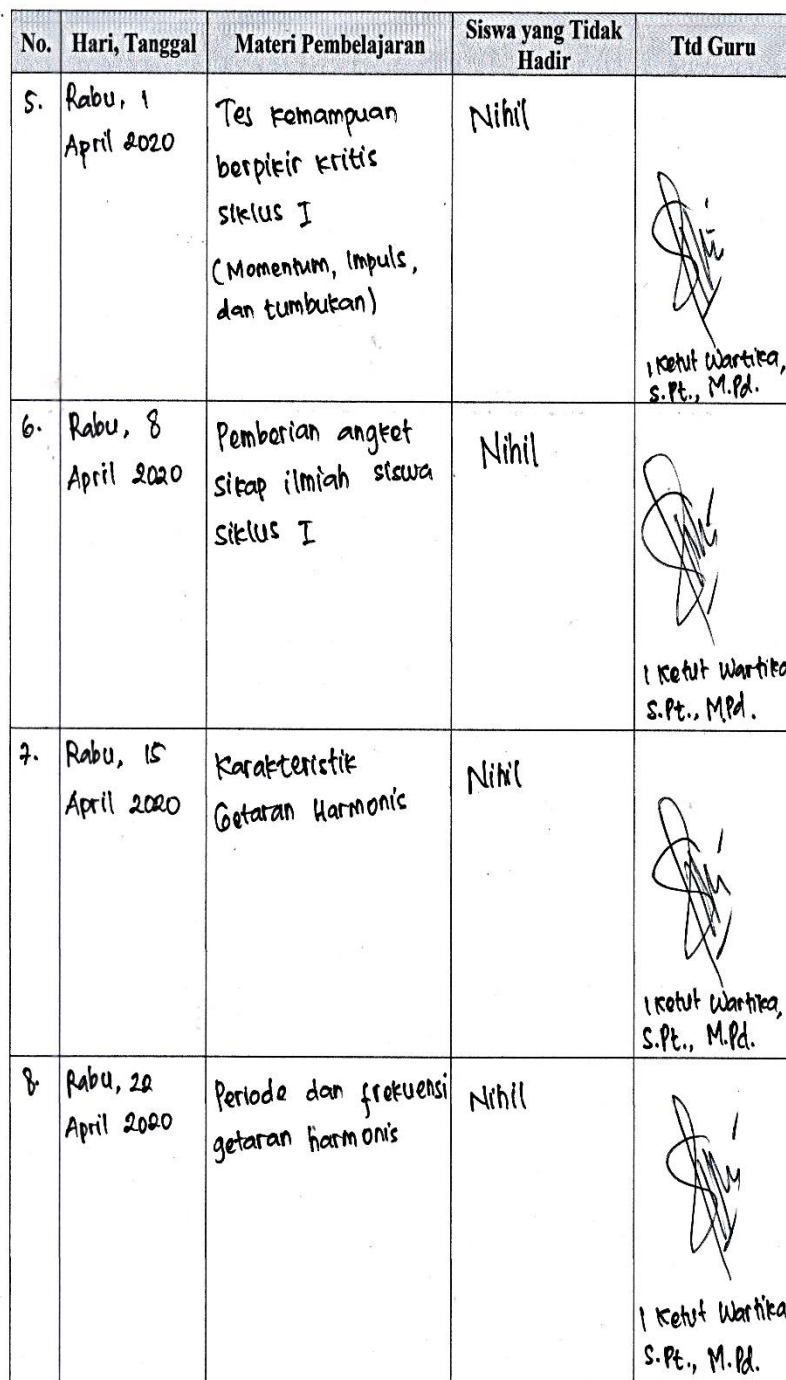 No. Hari, Tanggal Materi Pembelajaran Siswa yang Tidak Hadir Ttd Guru
5. Rabu, 1 April 2020
Tes kemampuan
berpikir kritis
siklus I
(Momentum, Impuls,
dan tumbukan)
Nihil
I Ketut Wartika,
S.Pt., M.Pd.
6. Rabu, 8 April 2020
Pemberian angket
sikap ilmiah siswa
siklus I
Nihil
I Ketut Wartika
S.Pt., M.Pd.
7. Rabu, 15 April 2020
Karakteristik
Getaran Harmonis
Nihil
I Ketut Wartika,
S.Pt., M.Pd.
8. Rabu, 22 April 2020
Periode dan frekuensi
getaran harmonis
Nihil
I Ketut Wartika
S.Pt., M.Pd.